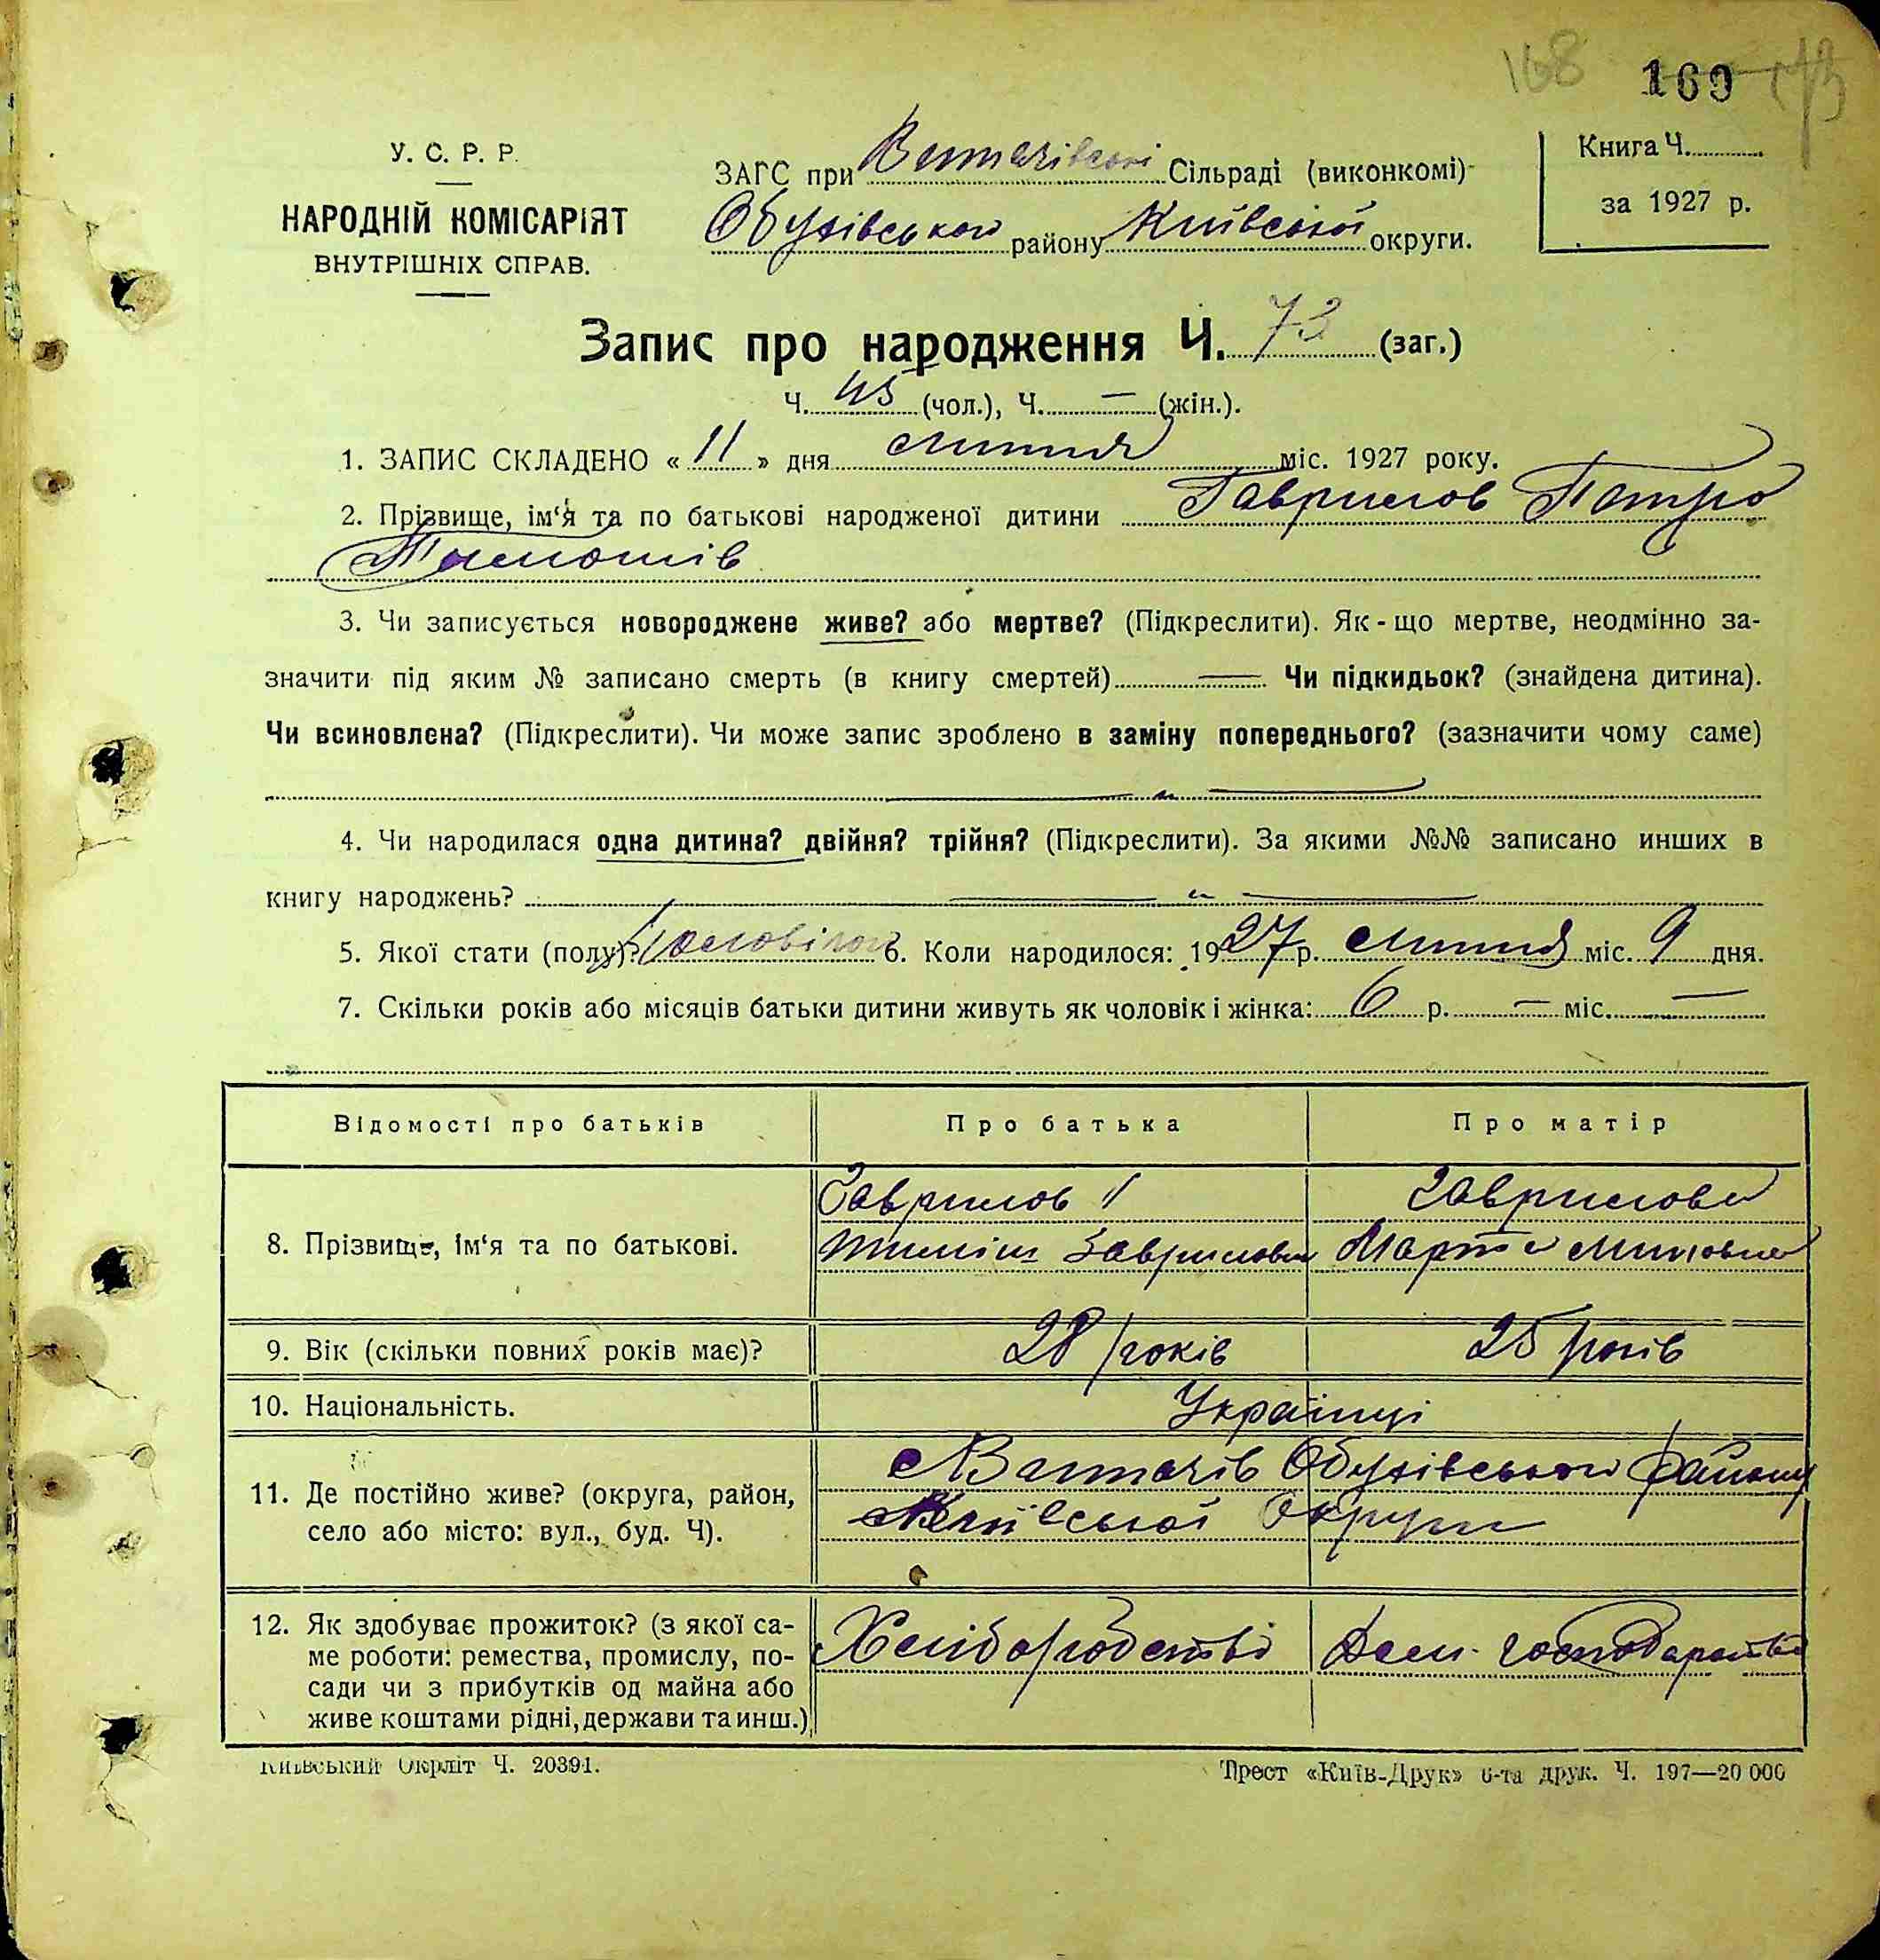 168 169
У. С. Р. Р.
НАРОДНІЙ КОМІСАРІЯТ
ВНУТРІШНІХ СПРАВ.
ЗАГС при Витачівські Сільраді (виконкомі)
Обухівського району Київської округи.
Книга Ч.
за 1927 р.
Запис про народження Ч. 73 (заг.)
Ч. 45 (чол.), Ч. — (жін.).
1. ЗАПИС СКЛАДЕНО « 11 » дня липня міс. 1927 року.
2. Прізвище, ім‘я та по батькові народженої дитини Гаврилов Петро
Тимошів
3. Чи записується новороджене живе? або мертве? (Підкреслити). Як-що мертве, неодмінно за-
значити під яким № записано смерть (в книгу смертей) — Чи підкидьок? (знайдена дитина).
Чи всиновлена? (Підкреслити). Чи може запис зроблено в заміну попереднього? (зазначити чому саме)
— „ —
4. Чи народилася одна дитина? двійня? трійня? (Підкреслити). За якими №№ записано инших в
книгу народжень? — „ —
5. Якої стати (полу)? 6. Коли народилося: 1927 р. липня міс. 9 дня.
7. Скільки років або місяців батьки дитини живуть як чоловік і жінка: 6 р. — міс. —
Відомості про батьків Про батька Про матір
8. Прізвище, ім‘я та по батькові.
Гаврилов Гаврилова
Тиміш Гаврилович Марта
9. Вік (скільки повних років має)? 28 років 25 років
10. Національність. Українці
11. Де постійно живе? (округа, район,
село або місто: вул., буд. Ч).
с Витачів Обухівського району
Київської Округи
12. Як здобуває прожиток? (з якої са-
ме роботи: ремества, промислу, по-
сади чи з прибутків од майна або
живе коштами рідні, держави та инш.)
Хліборобстві Дом. господарство
Київський Окрліт Ч. 20391.
Трест «Київ-Друк» 6-та друк. Ч. 197—20 000